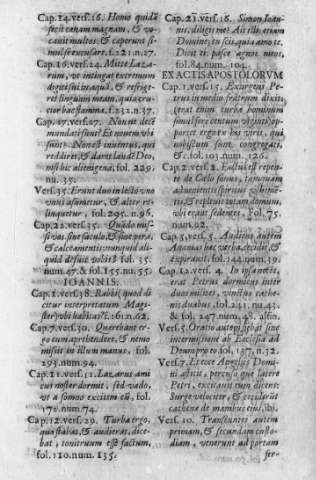 Cap. 14. vers. 16. Homo quidã
fecit cœnam magnam, & vo-
cauit multos: & cœperunt si-
mul se excusare, f. 221. n. 37.
Cap. 16. vers. 24. Mitte Laza-
rum, vt intingat extremum
digiti sui in aquã, & refrige-
ret linguam meam, quia cru-
cior hac flamma, f. 232. n. 37.
Cap. 17. vers. 17. Nonne decē
mundati sunt? Et nouem vbi
sunt? Non est inuentus, qui
rediret, & daret laudē Deo,
nisi hic alienigena, fol. 229.
nu. 38.
Vers. 35. Erunt duo in lecto: vno
vnus assumetur, & alter re-
linquetur, fol. 295. n. 96.
Cap. 22. vers. 35. Quãdo mis-
si vos sine sacculo, & sine pera,
& calceamentis: nunquid ali-
quid defuit vobis? fol. 35.
num. 47. & fol. 155. nu. 55.
IOANNIS.
Cap. 1. vers. 38. Rabbi, quod di
citur interpretatum Magi-
ster, vbi habitas? f. 161. n. 62.
Cap. 7. vers. 30. Quærebant er-
go eum apprehendere, & nemo
misit in illum manus, fol.
293. num. 94.
Cap. 11. vers. 11. Lazarus ami
cus noster dormit, sed vado,
vt a somno excitem eũ, fol.
171. num. 74.
Cap. 12. vers. 29. Turba ergo,
quæ stabat, & audierat, dice-
bat, tonitruum esse factum,
fol. 110. num. 135.
Cap. 21. vers. 16. Simon Ioan-
nis, diligis me? Ait illi: etiam
Domine, tu scis, quia amo te.
Dicit ei: pasce agnos meos,
fol. 84. num. 104.
EX ACTIS APOSTOLORVM
Cap. 1. vers. 15. Exurgens Pe-
trus in medio fratrum dixit:
(erat enim turba hominum
simul fere centum viginti) o-
portet ergo ex his viris, qui
nobiscum sunt congregati,
&c. fol. 103. num. 126.
Cap. 2. vers. 2. Factus est repen-
te de Cælo sonus, tamquam
aduenientis spiritus vehemē-
tis, & repleuit totam domum,
vbi erant sedentes, Fol. 75.
num. 92.
Cap. 5. vers. 5. Audiens autem
Ananias hæc verba, cecidit, &
expirauit, fol. 144. num. 39.
Cap. 12. vers. 4. In ipsa nocte,
erat Petrus dormiens inter
duos milites, vinctus cathe-
nis duabus, fol. 241. nu. 43.
& fol. 247. num. 48. alfin.
Vers. 5. Oratio autem fiebat sine
intermissione ab Ecclesia ad
Deum pro eo, fol. 187. n. 32.
Vers. 7. Et ecce Angelus Domi-
ni astitit, percusso que latere
Petri, excitauit eum dicens:
Surge velociter, & ceciderũt
cathenæ de manibus eius, ibi.
Vers. 10. Transeuntes autem
primam, & secundam custo-
diam, venerunt ad portam
fer-